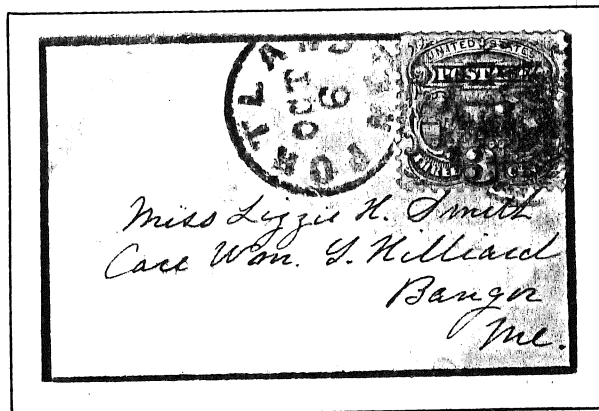 PORTLAND ME.
OCT
6
UNITED STATES
POSTAGE
THREE 3 CENTS
Miss Lizzie H. Smith
Care Wm. S. Hilliard
Bangor
Me.